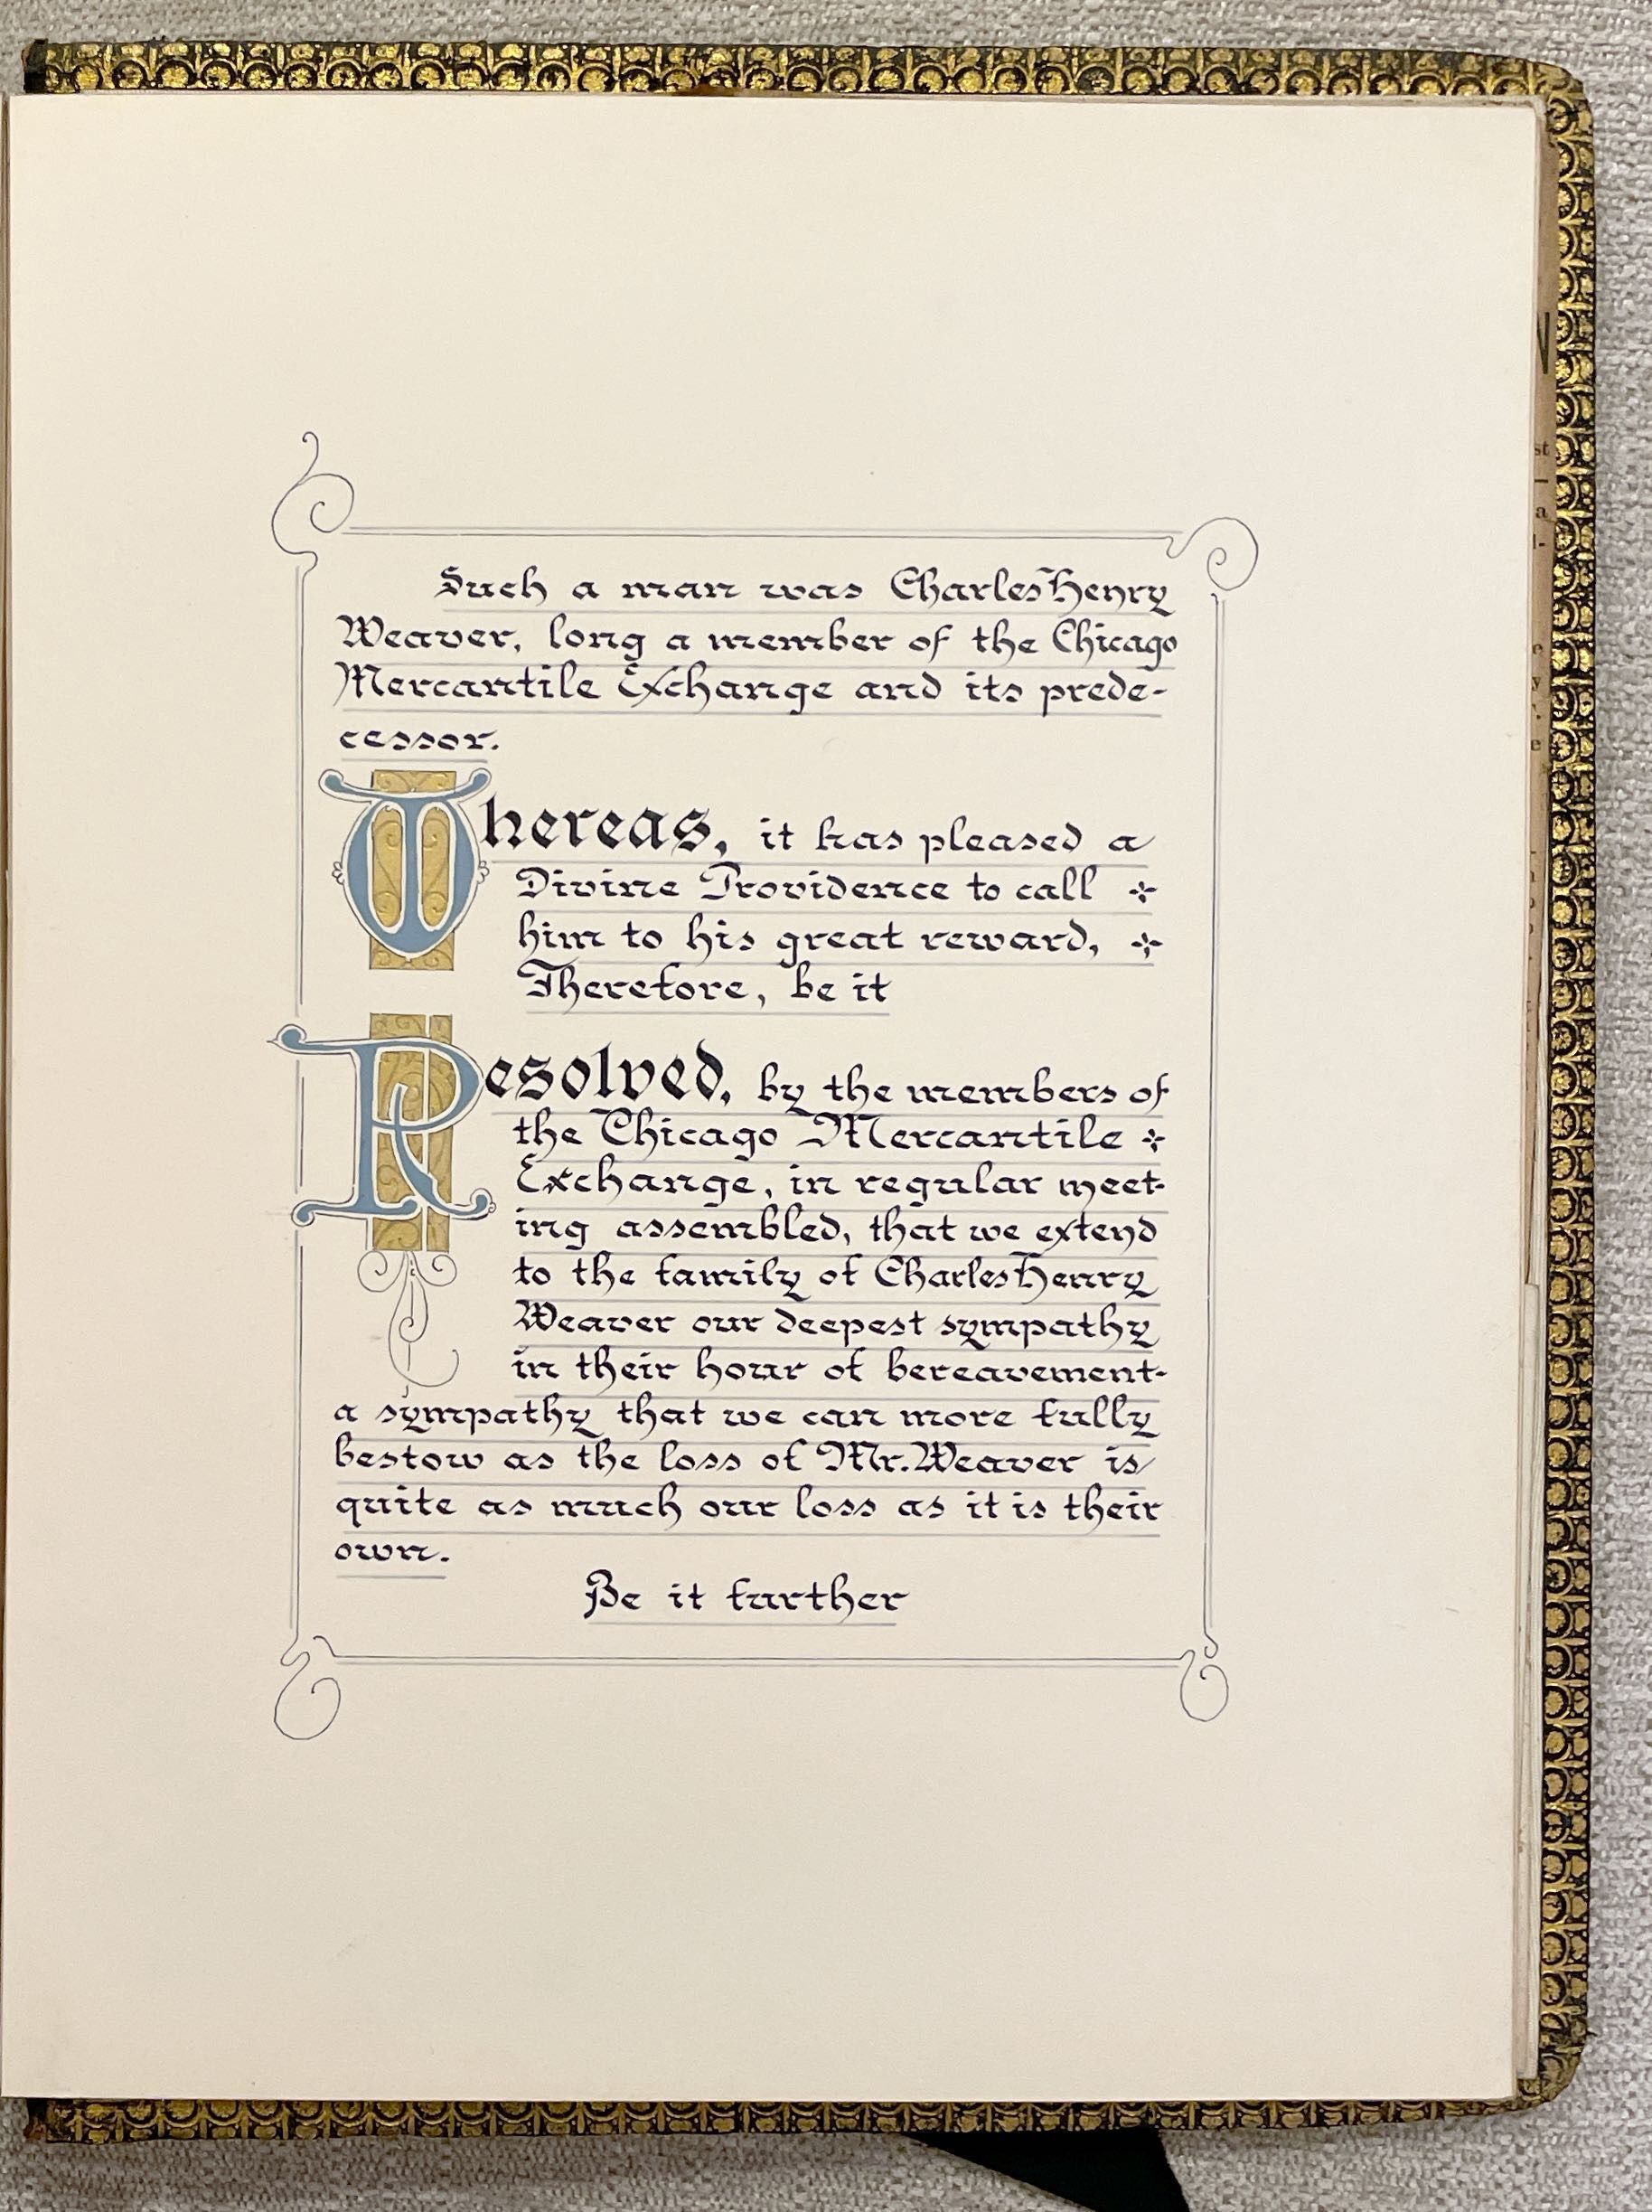 Such a man was Charles Henry
Weaver, long a member of the Chicago
Mercantile Exchange and its prede-
cessor.
Whereas, it has pleased a
Divine Providence to call
him to his great reward,
Therefore, be it
Resolved, by the members of
the Chicago Mercantile
Exchange, in regular meet-
ing assembled, that we extend
to the family of Charles Henry
Weaver our deepest sympathy
in their hour of bereavement-
a sympathy that we can more fully
bestow as the loss of Mr. Weaver is
quite as much our loss as it is their
own.
Be it further